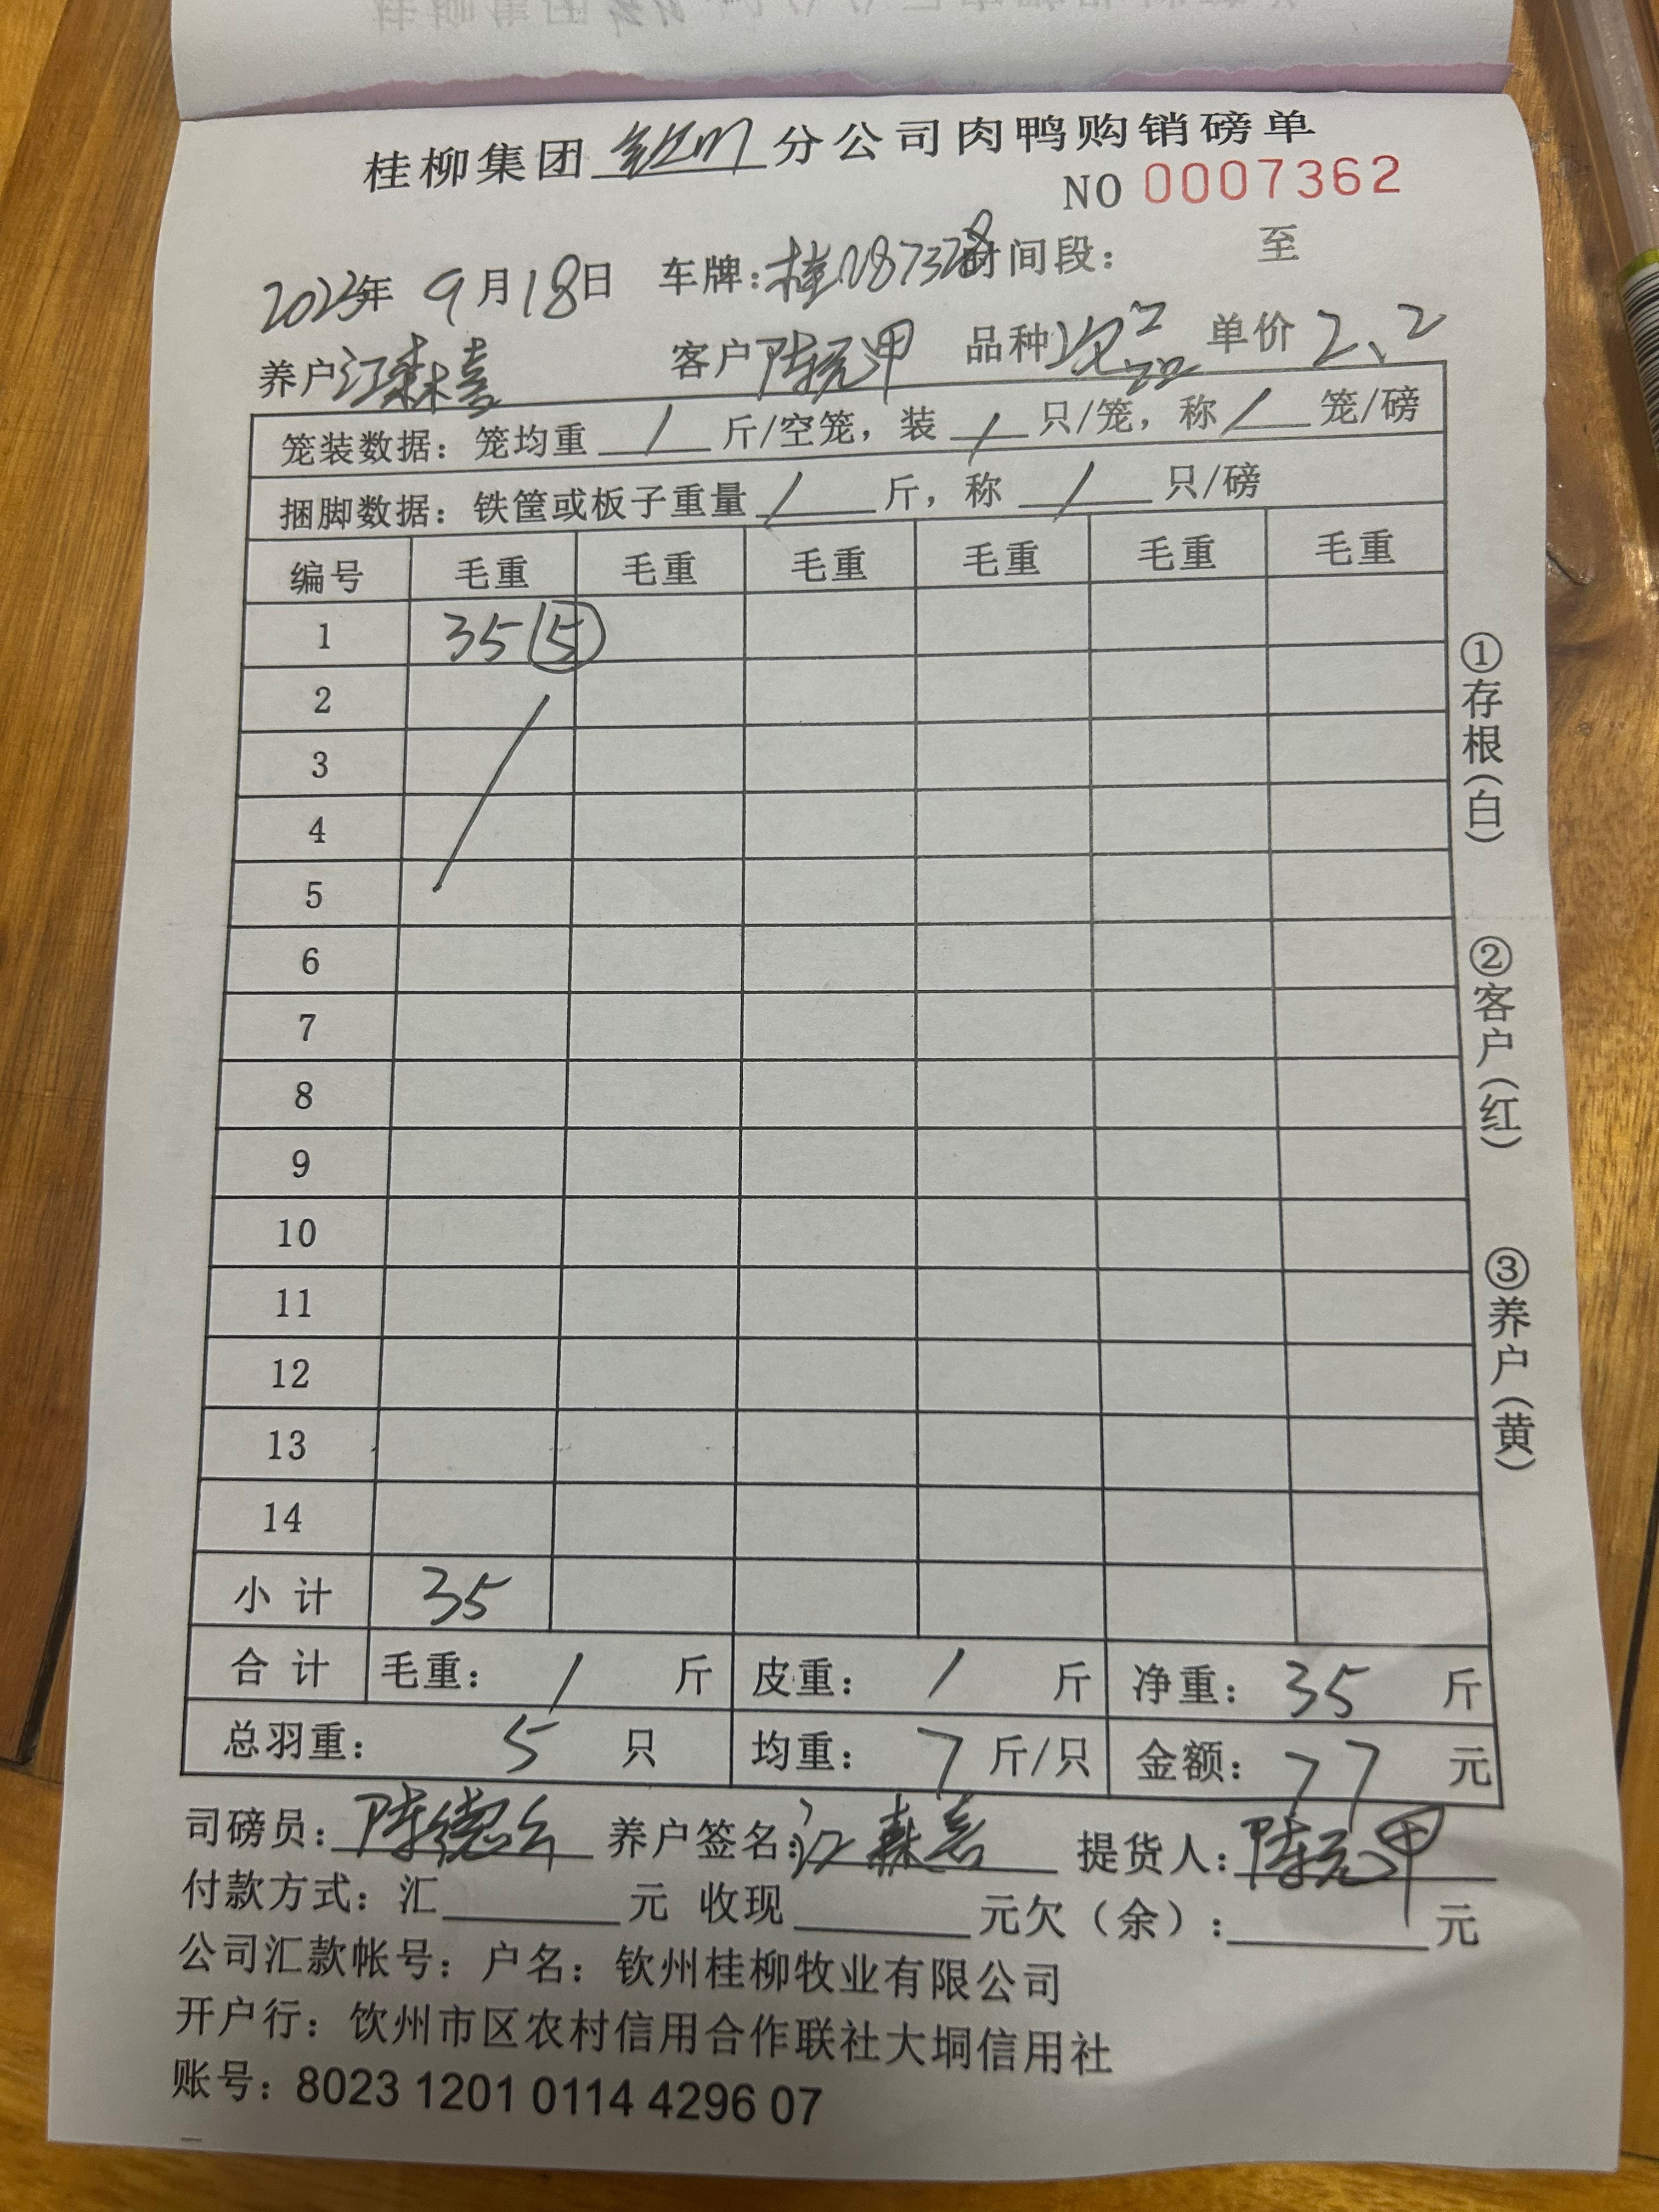 桂柳集团钦州分公司肉鸭购销磅单
NO 0007362
2023年 9月18日 车牌: 时间段: 至
养户江森喜 客户陈元甲 品种次品 单价2、2
笼装数据：笼均重 / 斤/空笼，装 / 只/笼，称 / 笼/磅
捆脚数据：铁筐或板子重量 / 斤，称 / 只/磅
编号 毛重 毛重 毛重 毛重 毛重 毛重
1 35⑤
2
3
4
5
6
7
8
9
10
11
12
13
14
小计 35
合计 毛重： / 斤 皮重： / 斤 净重： 35 斤
总羽重： 5 只 均重： 7 斤/只 金额： 77 元
司磅员： 陈德 养户签名：江森喜 提货人：陈元甲
付款方式：汇 元 收现 元欠（余）： 元
公司汇款帐号：户名：钦州桂柳牧业有限公司
开户行：饮州市区农村信用合作联社大垌信用社
账号：8023 1201 0114 4296 07
①存根（白）
②客户（红）
③养户（黄）